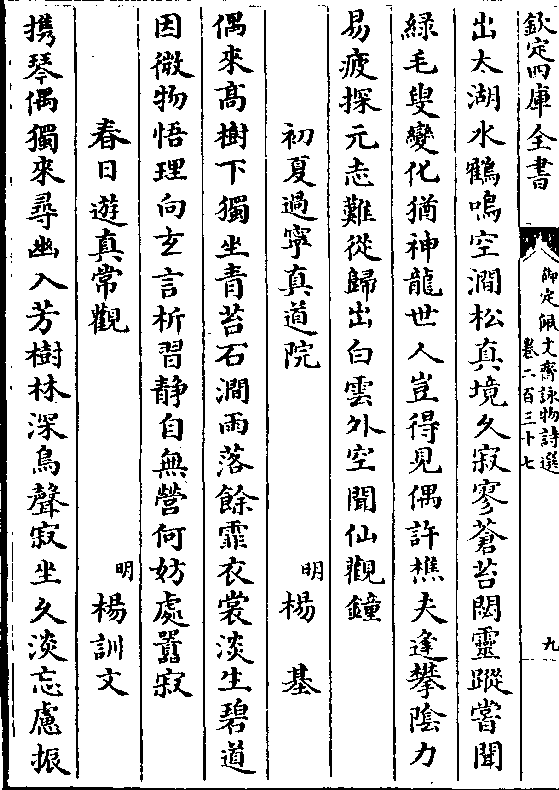 欽定四庫全書
御定佩文齋詠物詩選
卷二百三十七
九
出太湖水鶴鳴空澗松真境久寂寥蒼苔閟靈蹤嘗聞
綠毛叟變化猶神龍世人豈得見偶許樵夫逢攀陰力
易疲探元志難從歸出白雲外空聞仙觀鐘
初夏過寧真道院 明 楊基
偶來高樹下獨坐青苔石澗雨落餘霏衣裳淡生碧道
因微物悟理向玄言析習靜自無營何妨處囂寂
春日遊真常觀 明 楊訓文
攜琴偶獨來尋幽入芳樹林深鳥聲寂坐久淡忘慮振